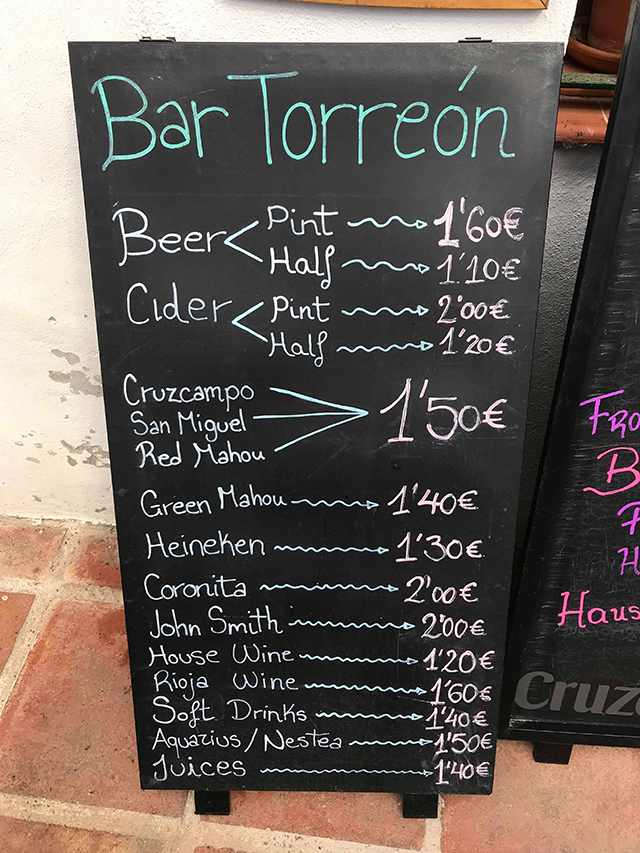 Bar Torreón
Beer < Pint 1'60€
Half 1'10€
Cider < Pint 2'00€
Half 1'20€
Cruzcampo
San Miguel 1'50€
Red Mahou
Green Mahou 1'40€
Heineken 1'30€
Coronita 2'00€
John Smith 2'00€
House Wine 1'20€
Rioja Wine 1'60€
Soft Drinks 1'40€
Aquarius/Nestea 1'50€
Juices 1'40€
Fro
B
H
Haus
Cruz